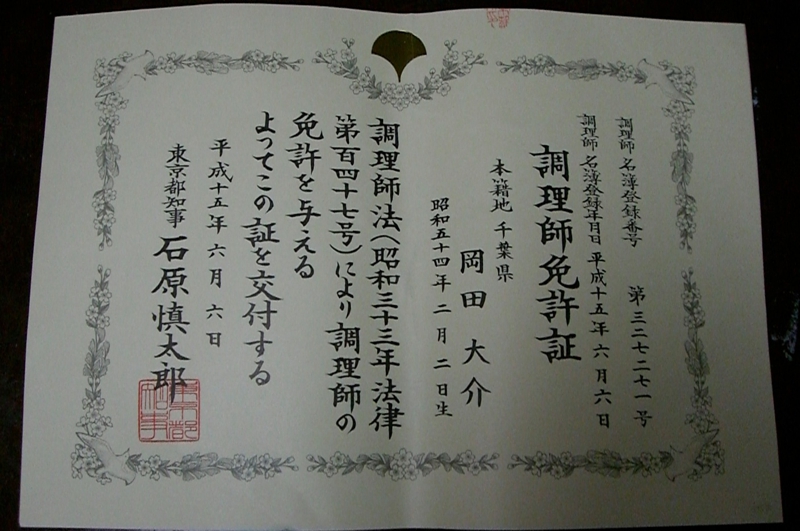 調理師名簿登録番号 第三二七二七一号
調理師名簿登録年月日 平成十五年六月六日
調理師免許証
本籍地 千葉県
岡田大介
昭和五十四年二月二日生
調理師法(昭和三十三年法律
第百四十七号)により調理師の
免許を与える
よってこの証を交付する
平成十五年六月六日
東京都知事 石原慎太郎